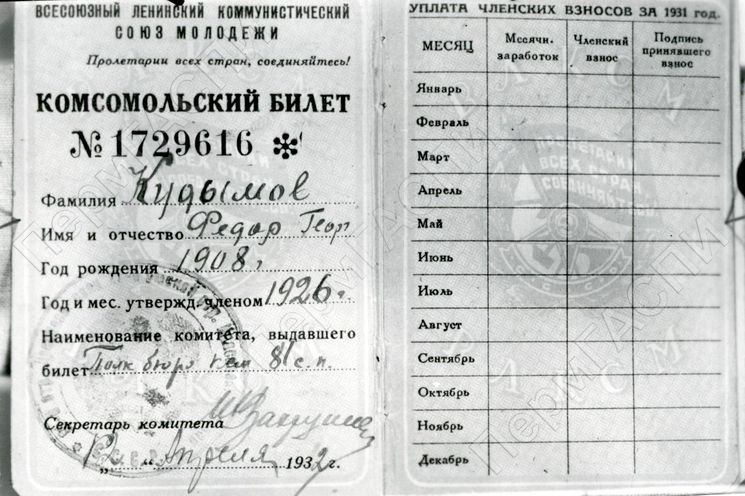 ВСЕСОЮЗНЫЙ ЛЕНИНСКИЙ КОММУНИСТИЧЕСКИЙ
СОЮЗ МОЛОДЕЖИ
Пролетарии всех стран, соединяйтесь!
КОМСОМОЛЬСКИЙ БИЛЕТ
№ 1729616
Фамилия Кудымов
Имя и отчество Федор Георг
Год рождения 1908 г
Год и мес. утвержд. членом 1926 г.
Наименование комитета, выдавшего
билет Полк бюро ксм 81 с.п.
Секретарь комитета
"12" апреля 1932 г.
УПЛАТА ЧЛЕНСКИХ ВЗНОСОВ ЗА 1931 год.
МЕСЯЦ Месячн. заработок Членский взнос Подпись принявшего взнос
Январь
Февраль
Март
Апрель
Май
Июнь
Июль
Август
Сентябрь
Октябрь
Ноябрь
Декабрь
ПРОЛЕТАРИИ
ВСЕХ СТРАН
СОЕДИНЯЙТЕСЬ
ВЛКСМ
ПермГАСПИ